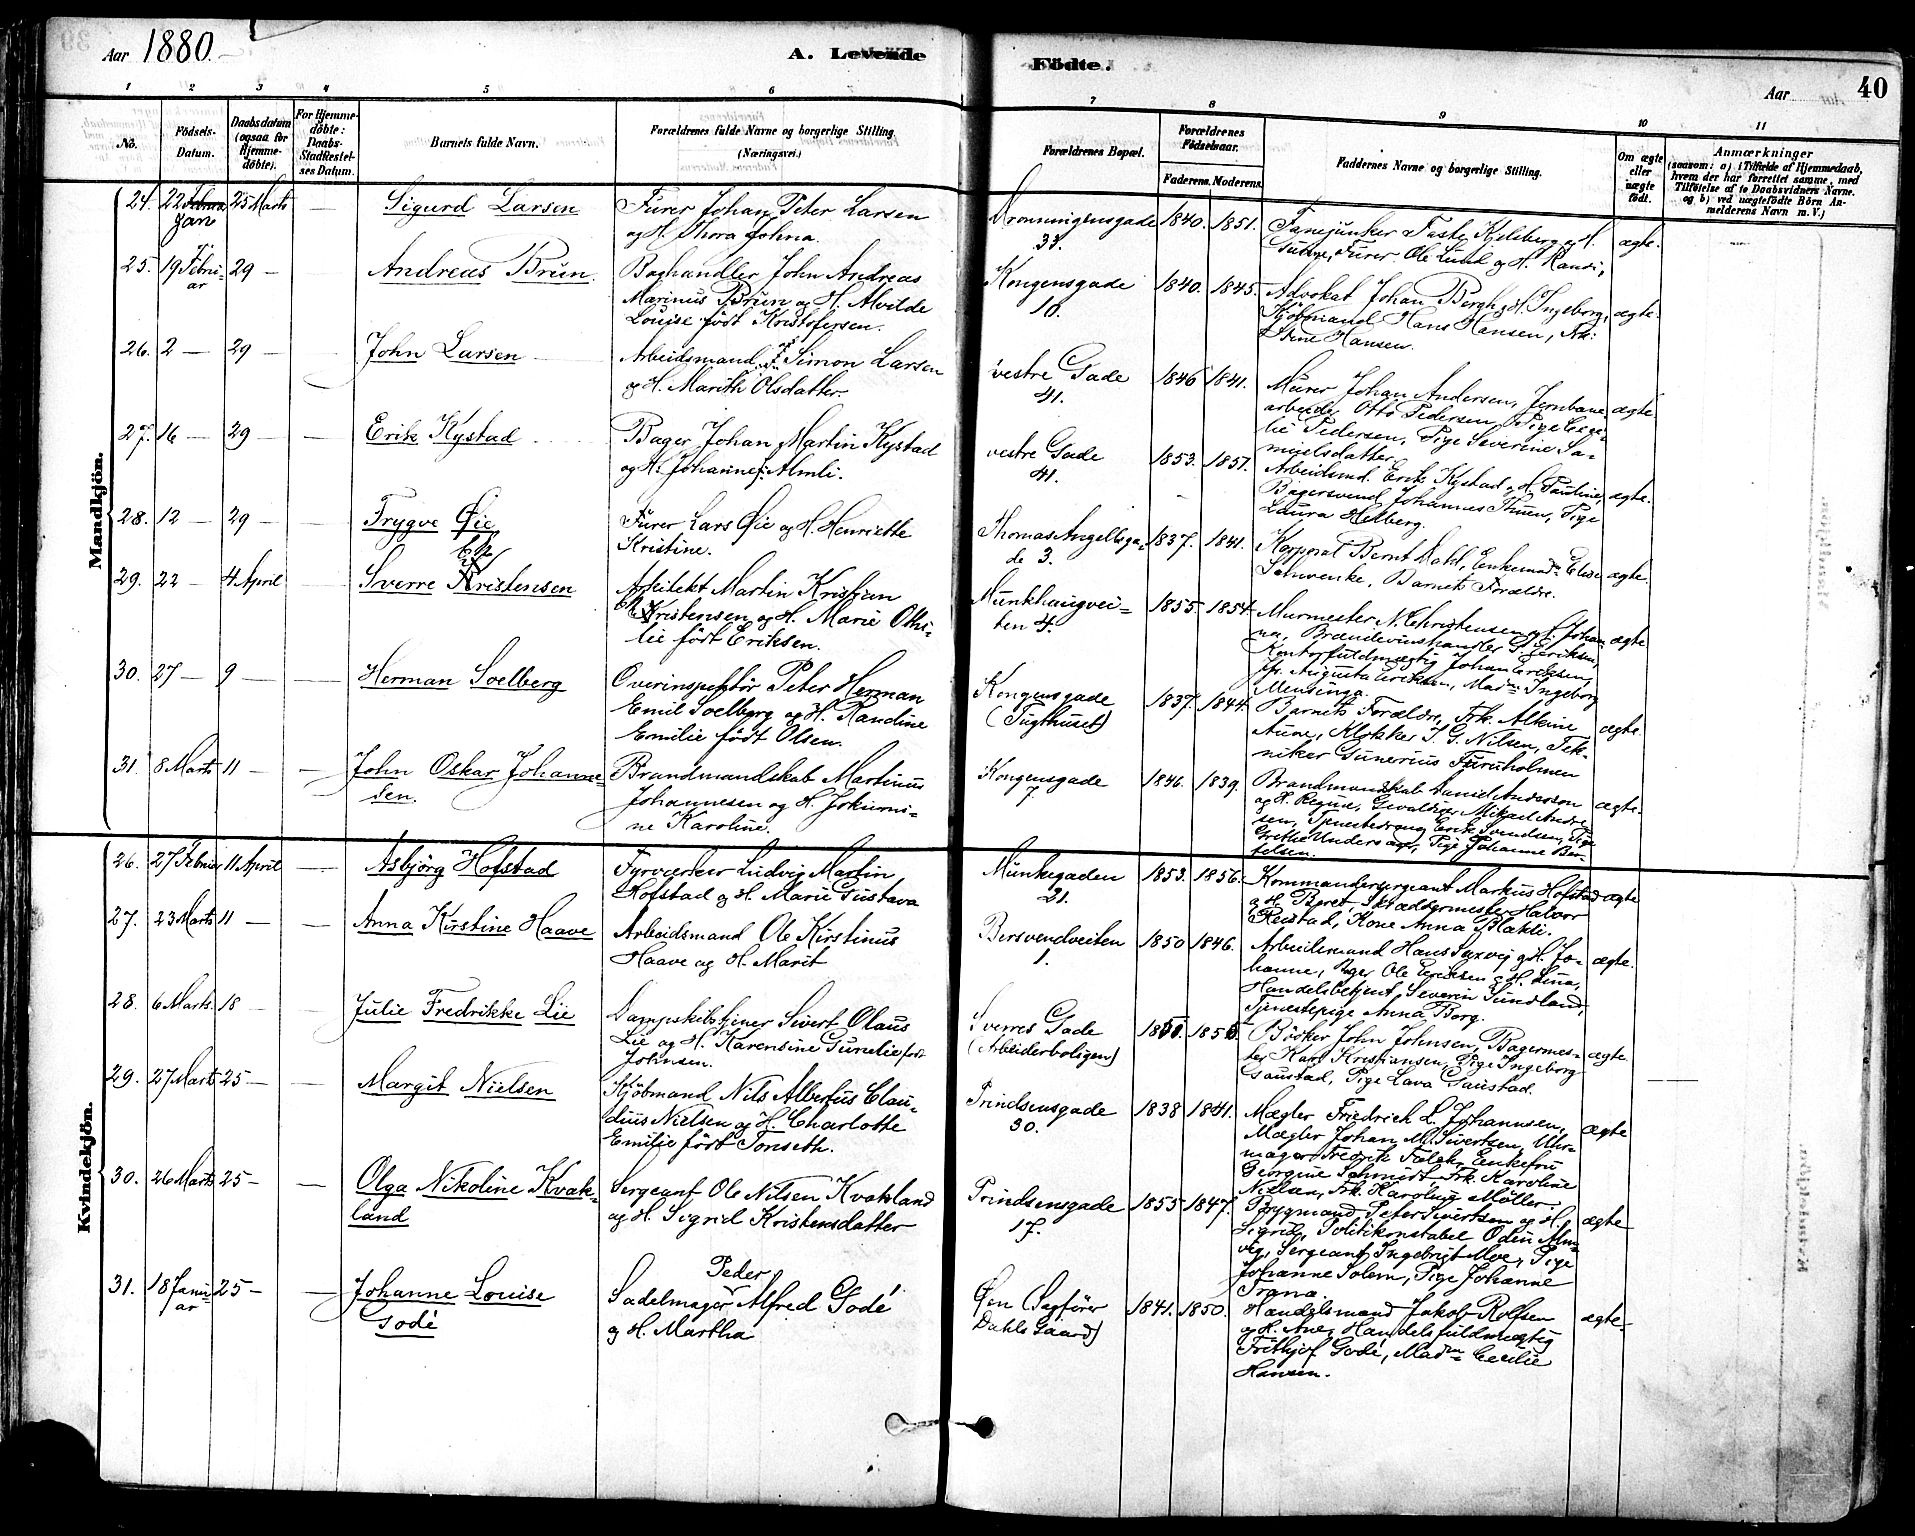 Aar 1880.
A. Levende Födte.
Aar 40
1 2 3 4 5 6 7 8 9 10 11
No.
Födsels-
Datum.
Daabsdatum
(ogsaa for
Hjemme-
döbte).
For Hjemme-
döbte:
Daabs-
Stadfestel-
ses Datum.
Barnets fulde Navn.
Forældrenes fulde Navne og borgerlige Stilling
(Næringsvei.)
Forældrenes Bopæl.
Forældrenes
Födselsaar.
Faderens. Moderens.
Faddernes Navne og borgerlige Stilling.
Om ægte
eller
uægte
födt.
Anmærkninger
(saasom: a) i Tilfælde af Hjemmedaab,
hvem der har forrettet samme, med
Tilföielse af to Daabsvidners Navne,
og b) ved uægtefödte Börn An-
melderens Navn m. V.)
Mandkjön.
24. 22 Jan 25 Marts
Sigurd Larsen
Furer Johan Peter Larsen
og H. Thora Johna.
Dronningensgade
1840. 1851.
Fanejunker Kjelsberg og H.
Furer Ole Lund og H. Randi,
ægte.
25. 19 Febru-
ar 29 —
Andreas Brun.
Boghandler John Andreas
Marinus Brun og H. Alvilde
Louise født Kristofersen.
Kongensgade
10.
1840. 1845.
Advokat Johan Bergh, og H. Ingeborg,
Kjøbmand Hans Hansen, Frk:
Stine Hansen.
ægte.
26. 2 — 29 —
John Larsen
Arbeidsmand Simon Larsen
og H. Marith Olsdatter.
vestre Gade
41.
1846 1841.
Murer Johan Andersen, Jernbane-
arbeider Otto Pedersen, Pige
Pedersen, Pige Severine Sa-
muelsdatter
ægte
27. 16 — 29 —
Erik Kystad
Bager Johan Martin Kystad
og H. Johanne f. Almli.
vestre Gade
41.
1853. 1857.
Arbeidsmd. Erik Kystad og H. Pauline,
Bagersvend Johannes Thuen, Pige
Laura Helberg.
ægte.
28. 12 — 29 —
Trygve Øie
Furer Lars Øie og H. Henriette
Kristine.
Thomas Angellsga-
de 3.
1837. 1841.
Korporal Bernt Dahl, Enkemad. Elise
Schwenke, Barnets Forældre.
ægte.
29. 22 — 4 April
Sverre Christensen
Arkitekt Martin Kristian
Christensen og H. Marie Othi-
lie født Eriksen.
Munkhaugvei-
ten 4.
1855. 1854.
Murmester N. Christensen og H. Johan-
na, Brændevinshandler P. Eriksen,
Kontorfuldmægtig Johan Eriksen,
Jfr. Augusta Eriksen, Mad. Ingeborg
Mensinga.
ægte
30. 27 — 9 —
Herman Soelberg
Overinspektør Peter Herman
Emil Soelberg og H. Randine
Emilie født Olsen.
Kongensgade
(Tugthuset)
1837. 1844.
Barnets Forældre, Frk. Alkine
Aune, Klokker J. G. Nilsen, Tek-
niker Gunerius Furuholmen
ægte.
31. 8 Marts 11 —
John Oskar Johanne-
sen.
Brandmandskab Martinus
Johannesen og H. Jokumi-
ne Karoline.
Kongensgade
7.
1846. 1839.
Brandmandskab Daniel Anderson
og H. Regine, Gevaldiger Mikael Andre-
sen, Tjenestedreng Erik Svendsen, Pige
Grethe Andersen, Pige Johanne Ber-
telsen.
ægte.
Kvindekjön.
26. 27 Februar 11 April
Asbjörg Hofstad
Fyrværker Ludvig Martin
Hofstad og H. Marie Gustava
Munkegaden
21.
1853. 1856.
Kommandersergeant Markus Hofstad
og H. Beret Skræddermester Halvor
Reistad, Kone Anna Blakli.
ægte
27. 23 Marts 11 —
Anna Kirstine Haave
Arbeidsmand Ole Kirstinus
Haave og H. Marit
Bersvendveiten
1.
1850 1846.
Arbeidsmand Hans Saxvig og H. Jo-
hanne, Bager Ole Eriksen og H. Lina,
Handelsbetjent Severin Sundland,
Tjenestepige Anna Borg.
ægte.
28. 6 Marts. 18 —
Julie Fredrikke Lie
Dampskibstjener Sivert Olaus
Lie og H. Karensine Gurelie født
Johnsen.
Sverres Gade
(Arbeiderboligen)
Bødker John Johnsen, Bagermes-
ter Karl Kristiansen, Pige Ingeborg
Gaustad, Pige Lava Gaustad.
ægte.
29. 27 Marts 25 —
Margit Nielsen
Kjøbmand Nils Albertus Clau-
dius Nielsen og H. Charlotte
Emilie født Tønseth.
Prindsensgade
30.
1838 1841.
Mægler Friedrich L. Johannsen,
Mægler Johan M. Sivertsen, Uhr-
mager Fredrik Falck, Enkefru
Georgine Schmidt, Frk. Karoline
Nielsen, Frk. Karoline Møller.
ægte
30. 26 Marts 25 —
Olga Nikoline Kvak-
land
Sergeant Ole Nilsen Kvakland
og H. Sigrid Kristensdatter
Prindsensgade
17.
1855 1847.
Brygmand Peter Sivertsen og H.
Sigrid, Politikonstabel Odin Alm-
vig, Sergeant Ingebrigt Moe, Pige
Johanne Solem, Pige Johanne
Trana.
ægte
31. 18 Janu-
ar 25 —
Johanne Louise
Godé
Sadelmager Peder Alfred Godé
og H. Martha
Øen (Sagfører
Dahls Gaard)
1841. 1850.
Handelsmand Jakob Rolfsen
og H. Ane, Handelsfuldmægtig
Frithjof Godé, Madm Cecilie
Hansen.
ægte.